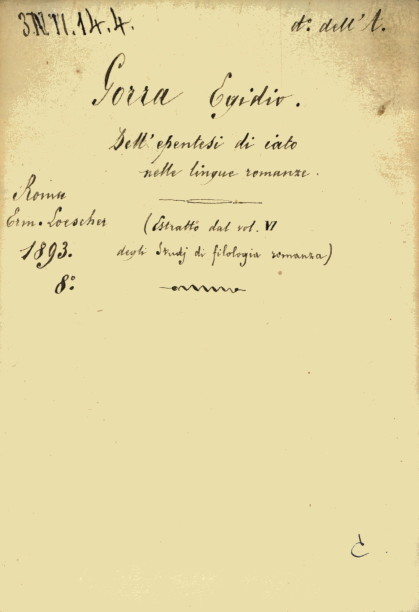 3.N.VI.14.4. d.º dell'A.
Gorra Egidio.
Dell'epentesi di iato
nelle lingue romanze.
Roma
Erm. Loescher
1893.
8º
(Estratto dal vol. VI
degli Studj di filologia romanza)